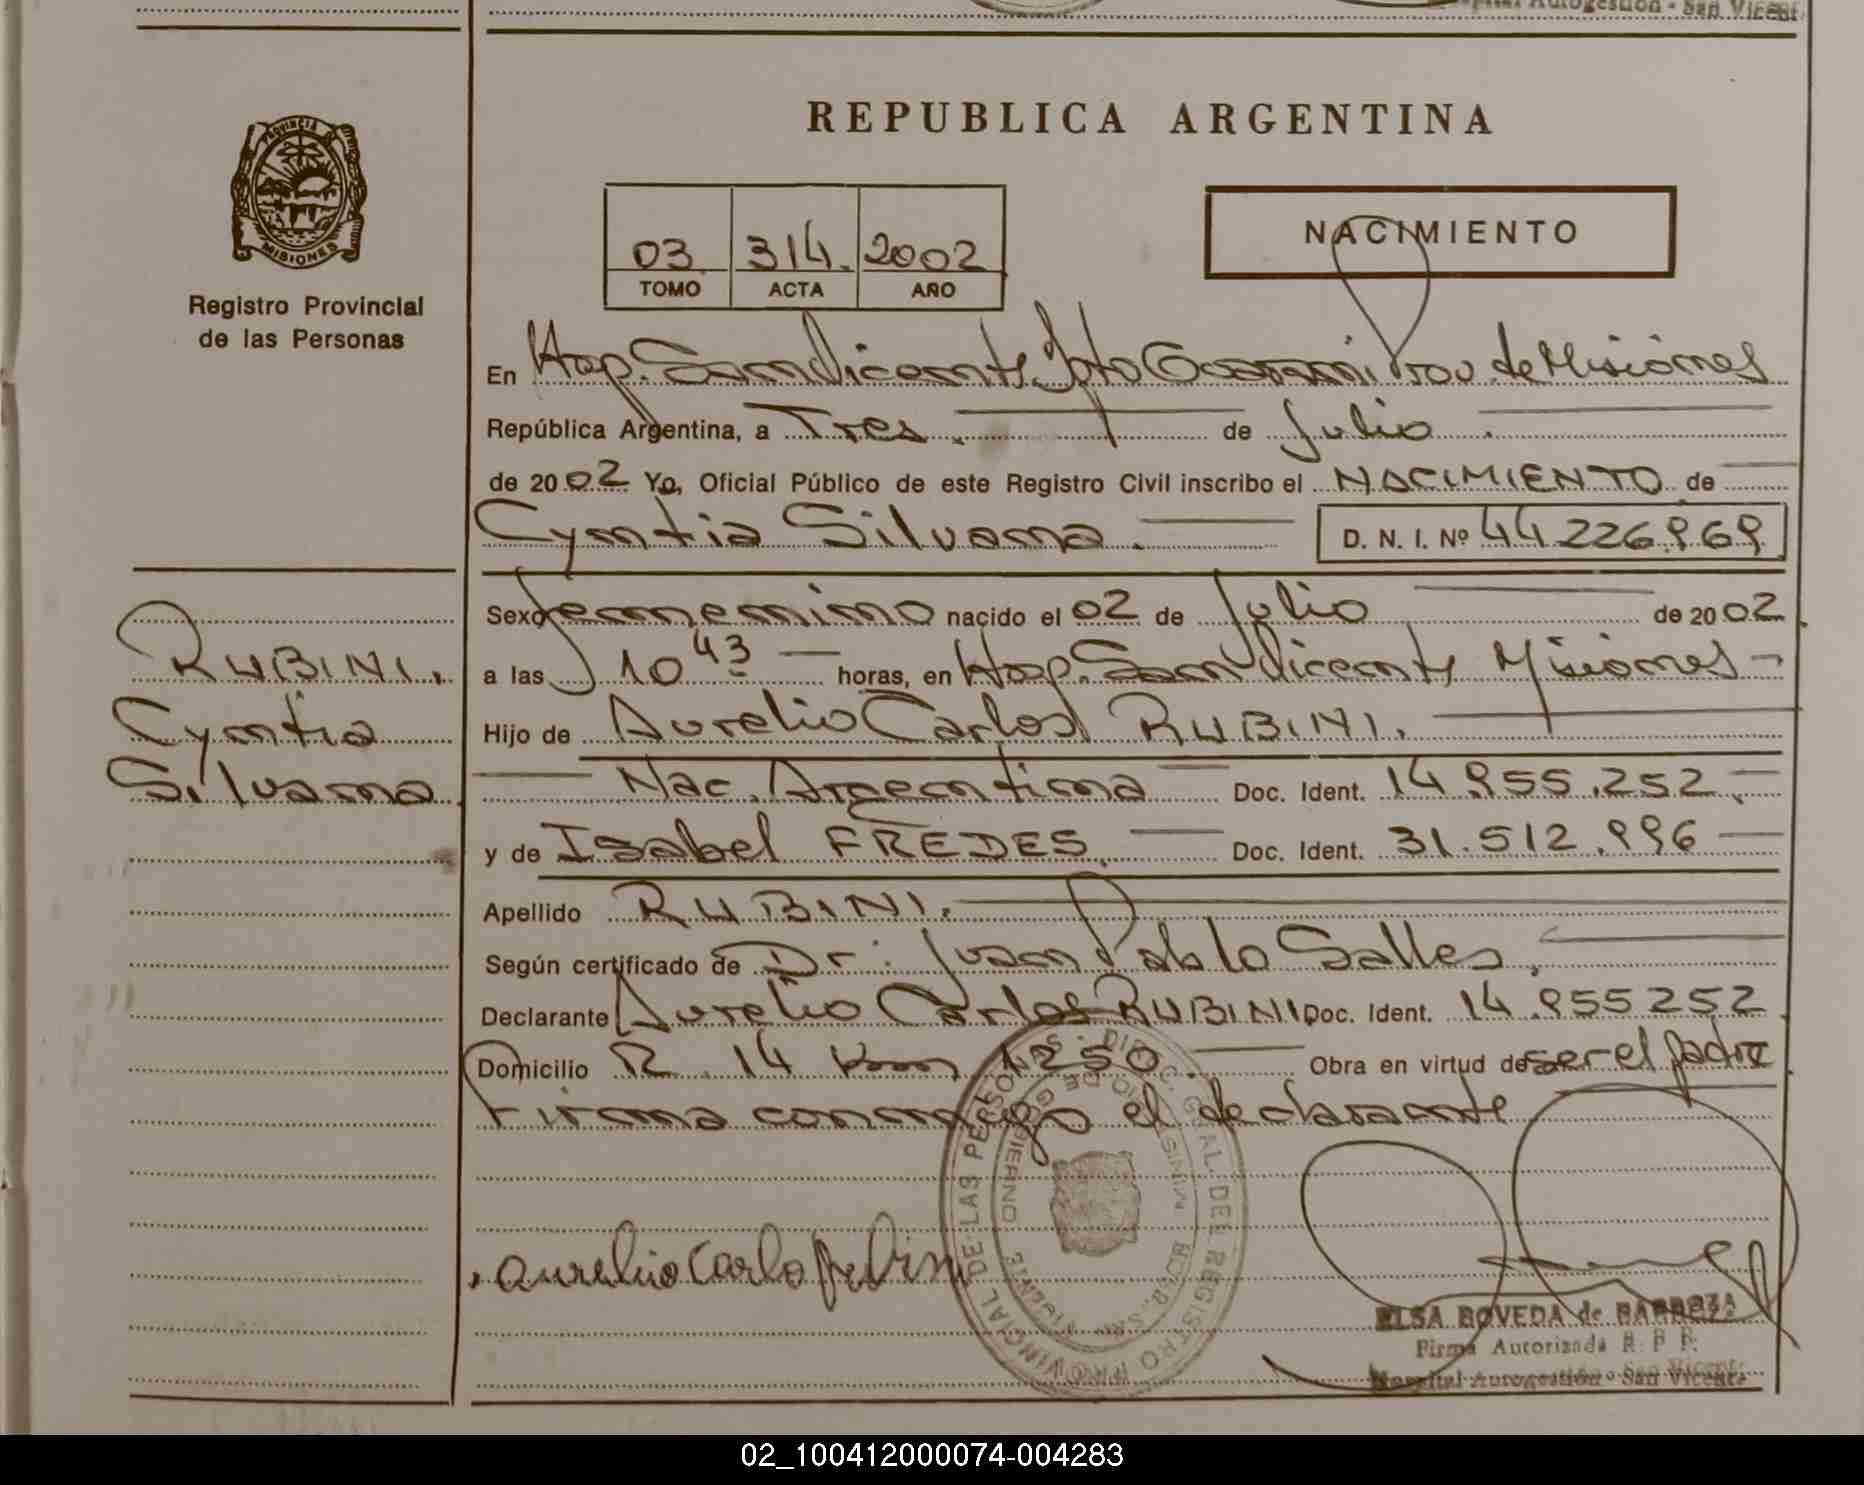 Hospital Autogestión - San Vicente
REPUBLICA ARGENTINA
PROVINCIA DE
MISIONES
Registro Provincial
de las Personas
03 314. 2002
TOMO ACTA AÑO
NACIMIENTO
En Hosp. San Vicente Dpto Guarani Prov. de Misiones
República Argentina, a Tres. de Julio.
de 2002 Yo, Oficial Público de este Registro Civil inscribo el NACIMIENTO de
Cyntia Silvana. D. N. I. Nº 44.226.969
Sexo femenino nacido el 02 de Julio de 2002
a las 10 43 horas, en Hosp. San Vicente Misiones
Hijo de Aurelio Carlos RUBINI.
Nac. Argentina Doc. Ident. 14.955.252.
y de Isabel FREDES. Doc. Ident. 31.512.996
Apellido RUBINI.
Según certificado de Dr. Juan Pablo Salles.
Declarante Aurelio Carlos RUBINI Doc. Ident. 14.955252
Domicilio R. 14 km 1250. Obra en virtud de ser el padre
Firma conmigo el declarante
RUBINI.
Cyntia
Silvana.
aurelio Carlo Rubini
DIREC. GRAL. DEL REGISTRO PROVINCIAL DE LAS PERSONAS
ELSA BOVEDA de BARBOZA
Firma Autorizada R. P. P.
Hospital Autogestión - San Vicente
02_100412000074-004283